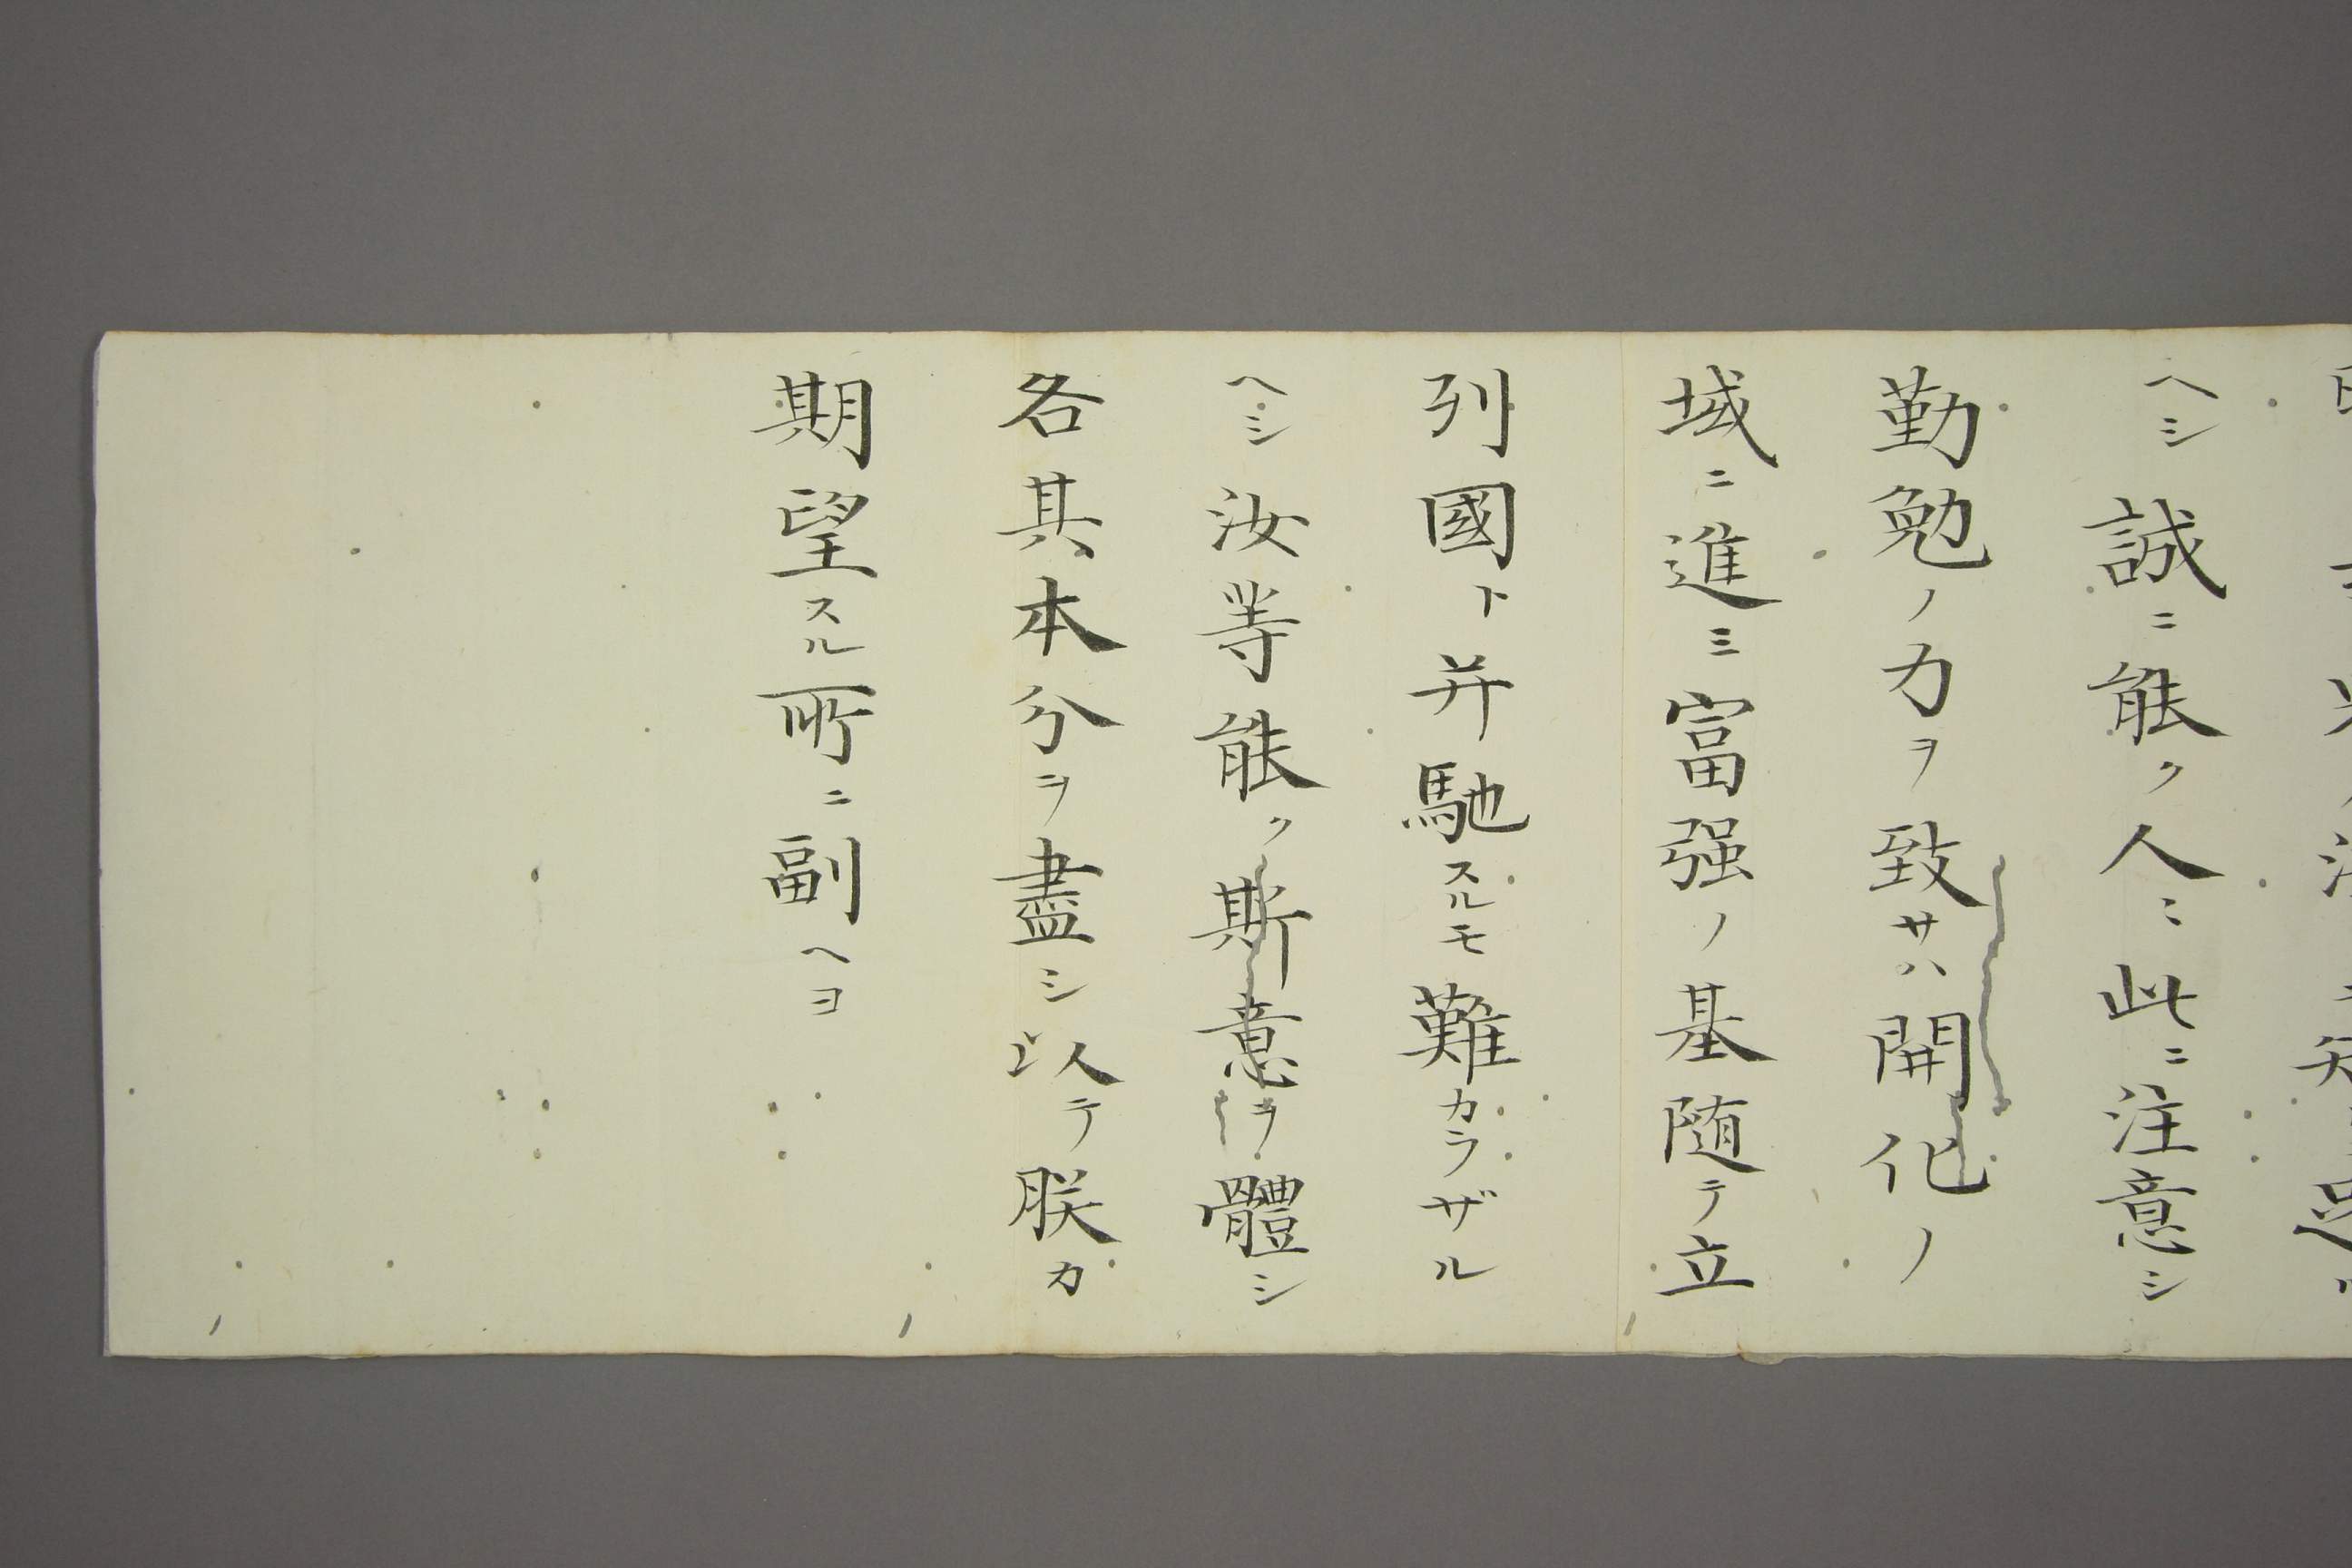 ヘシ誠ニ能ク人ミ此ニ注意シ
勤勉ノ力ヲ致サハ開化ノ
域ニ進ミ富强ノ基随テ立
列國ト并馳スルモ難カラザル
ヘシ汝等能ク斯意ヲ體シ
各其本分ヲ盡シ以テ朕カ
期望スル所ニ副ヘヨ